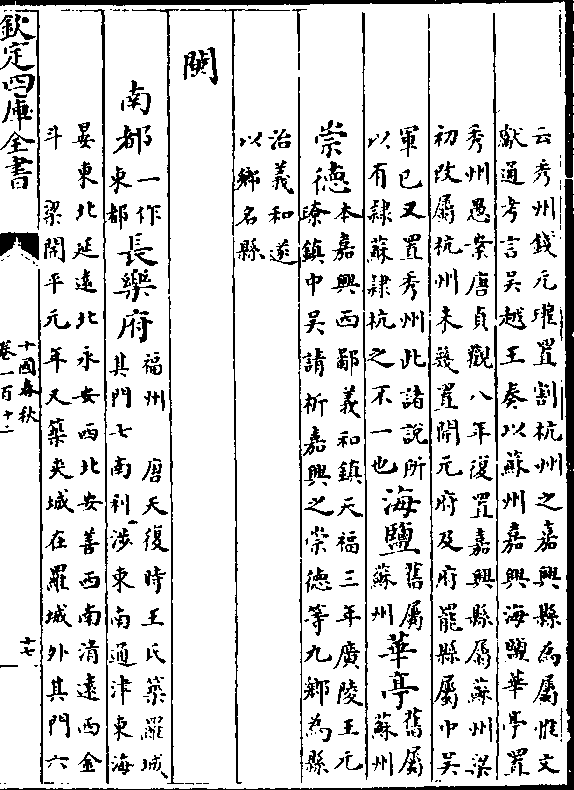 云秀州錢元瓘置割杭州之嘉興縣為屬惟文
獻通考言吳越王奏以蘇州嘉興海鹽華亭置
秀州愚案唐貞觀八年復置嘉興縣屬蘇州梁
初改屬杭州未幾置開元府及府罷縣屬中吳
軍已又置秀州此諸說所
以有隸蘇隸杭之不一也
海鹽
舊屬
蘇州
華亭
舊屬
蘇州
崇德
本嘉興西鄙義和鎮天福三年廣陵王元
璙鎮中吳請析嘉興之崇德等九鄉為縣
治義和遂
以鄉名縣
閩
南都
一作
東都
長樂府
福州 唐天復時王氏築羅城
其門七南利涉東南通津東海
晏東北延遠北永安西北安善西南清遠西金
斗 梁開平元年又築夾城在羅城外其門六
欽定四庫全書
十國春秋
卷一百十二
十七